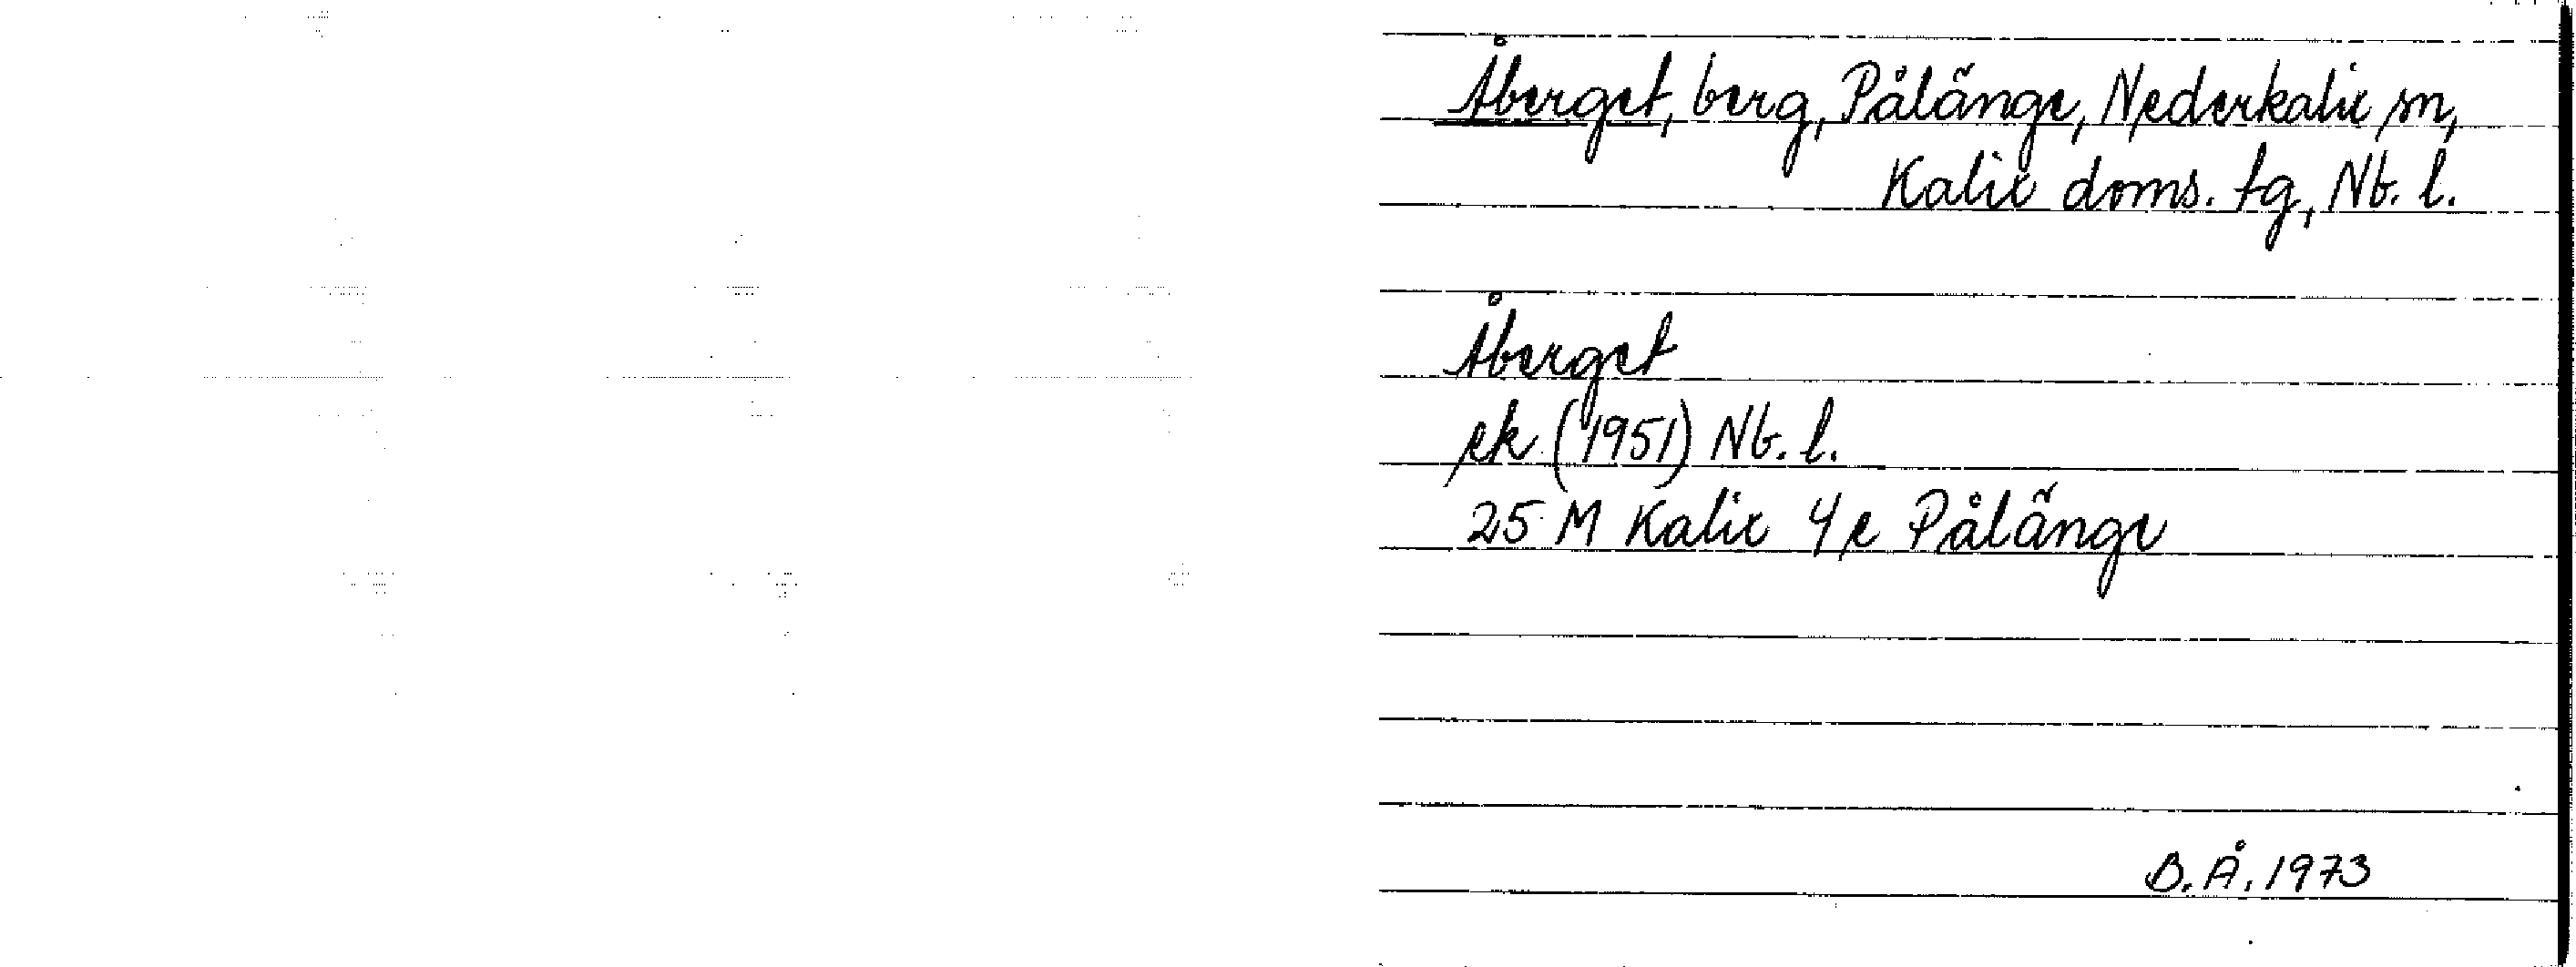 Åberget, berg, Pålänge, Nederkalix sn,
Kalix doms. tg, Nb. l.
Åberget
ek (1951) Nb. l.
25 M Kalix 4e Pålänge
B.Å. 1973